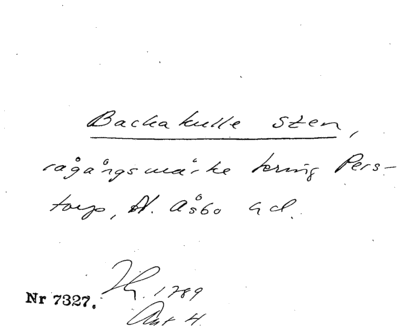 Backakulle sten,
rågångsmärke kring Pers-
torp, N. Åsbo hd.
Nr 7327. 1789
Akt 4